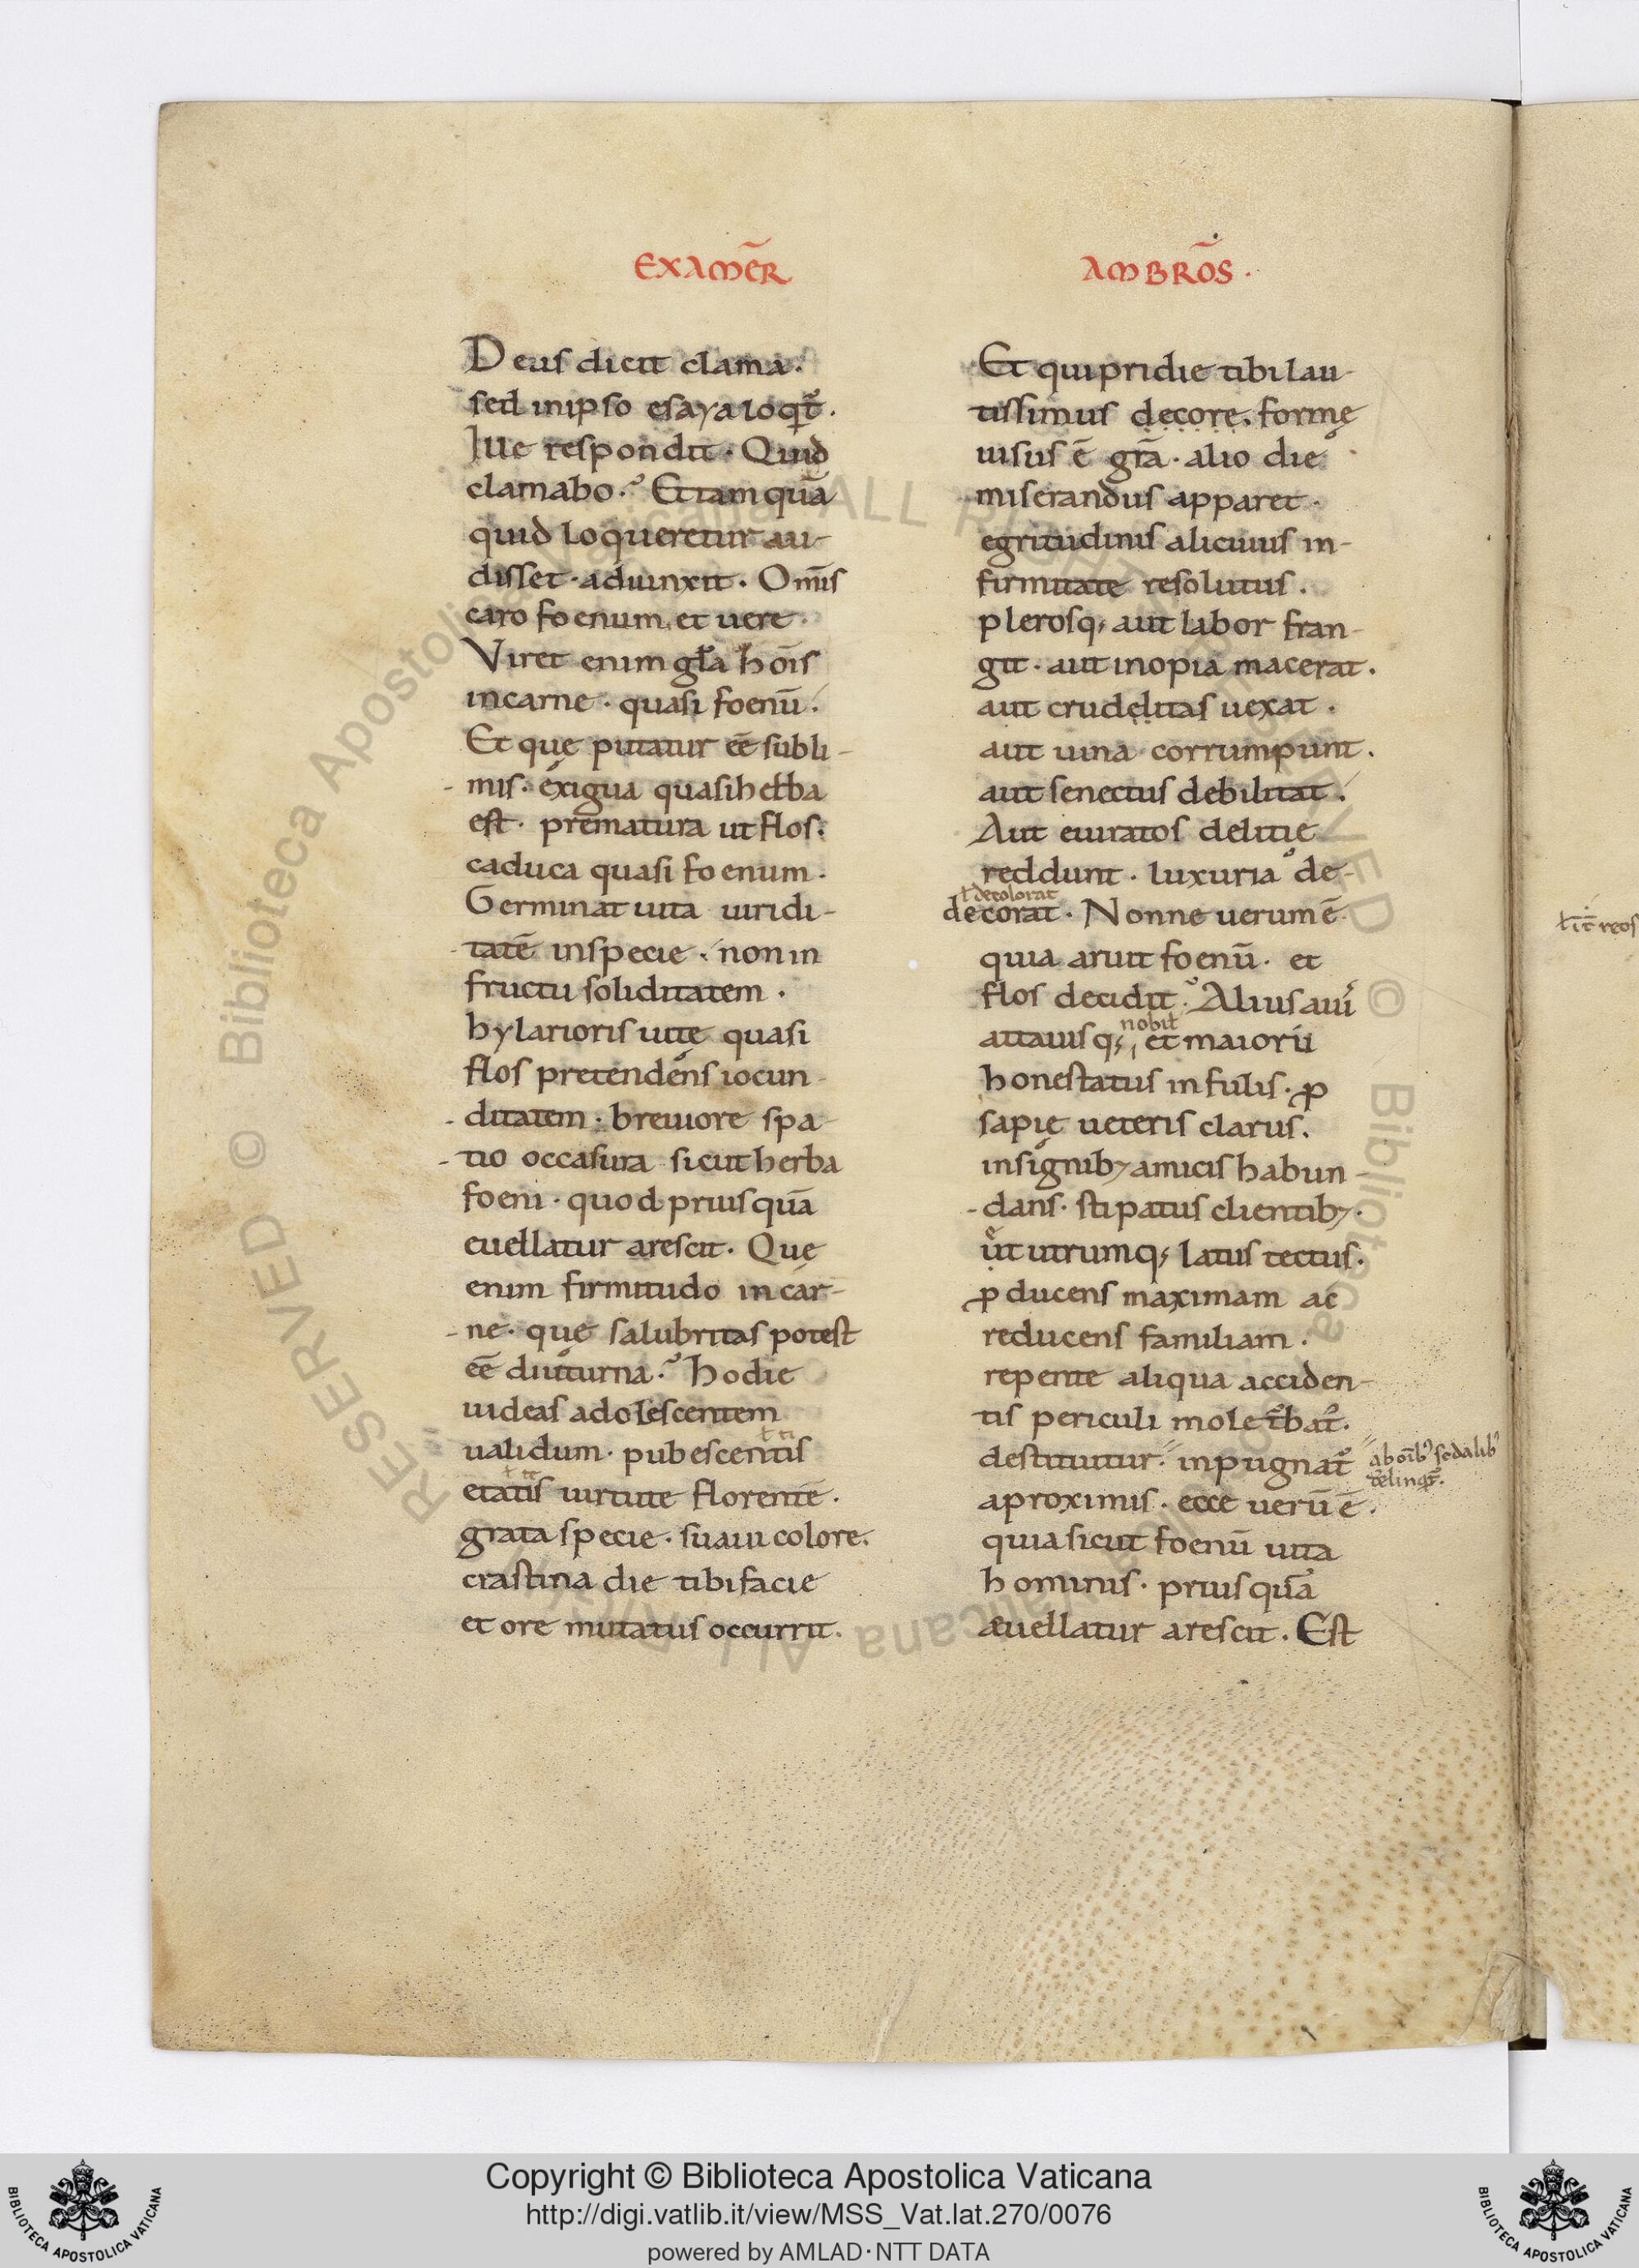 EXAMER̄
Deus dicit clama.
sed in ipso esaya loq̄t̄.
Iue respondit. Quid
clamabo. Etiam quā
quid loqueretur au-
disset. adiunxit. Om̄is
caro foenum. et uere.
Viret enim gła hōis
in carne. quasi foenū.
Et quę putatur eē subli-
mis. exigua quasi herba
est. prematura ut flos.
caduca quasi foenum.
Germinat uita uiridi-
tatē in specie. non in
fructu soliditatem.
hylarioris uitę quasi
flos pretendens iocun-
ditatem. breuiore spa-
tio occasura sicut herba
foeni. quod priusquā
euellatur arescit. Quę
enim firmitudo in car-
ne. quę salubritas potest
eē diuturna. hodie
uideas adolescentem
ł ti
ualidum. pubescentis
ł te
etatis uirtute florentē.
grata specie. suaui colore.
crastina die tibi facie
et ore mutatus occurrit.
AMBRŌS.
Et qui pridie tibi lau-
tissimus decore. formę
uisus ē gr̄a. alio die
miserandus apparet.
egritudinis alicuius in-
firmitate resolutus.
plerosq; aut labor fran-
git. aut inopia macerat.
aut crudelitas uexat.
aut uina corrumpunt.
aut senectus debilitat.
Aut euiratos delitie
reddunt. luxuria de-
ł decolorat
decorat. Nonne uerum ē
quia aruit foenū. et
flos decidit. Alius aui
nobil
attauisq; et maiorū
honestatus infulis. ꝓ
sapię ueteris clarus.
insignib; amicis habun-
dans. stipatus clientib;.
ut utrumq; latus tectus.
ꝓducens maximam ac
reducens familiam.
repente aliqua acciden-
tis periculi mole t̄bat̄.
destituitur. inpugnat̄
ab oīb; sodalib;
derelinq̄t̄.
a proximis. ecce uerū ē.
quia sicut foenū uita
hominis. priusquā
æuellatur arescit. Est
Copyright © Biblioteca Apostolica Vaticana
http://digi.vatlib.it/view/MSS_Vat.lat.270/0076
powered by AMLAD·NTT DATA
BIBLIOTECA APOSTOLICA VATICANA
BIBLIOTECA APOSTOLICA VATICANA